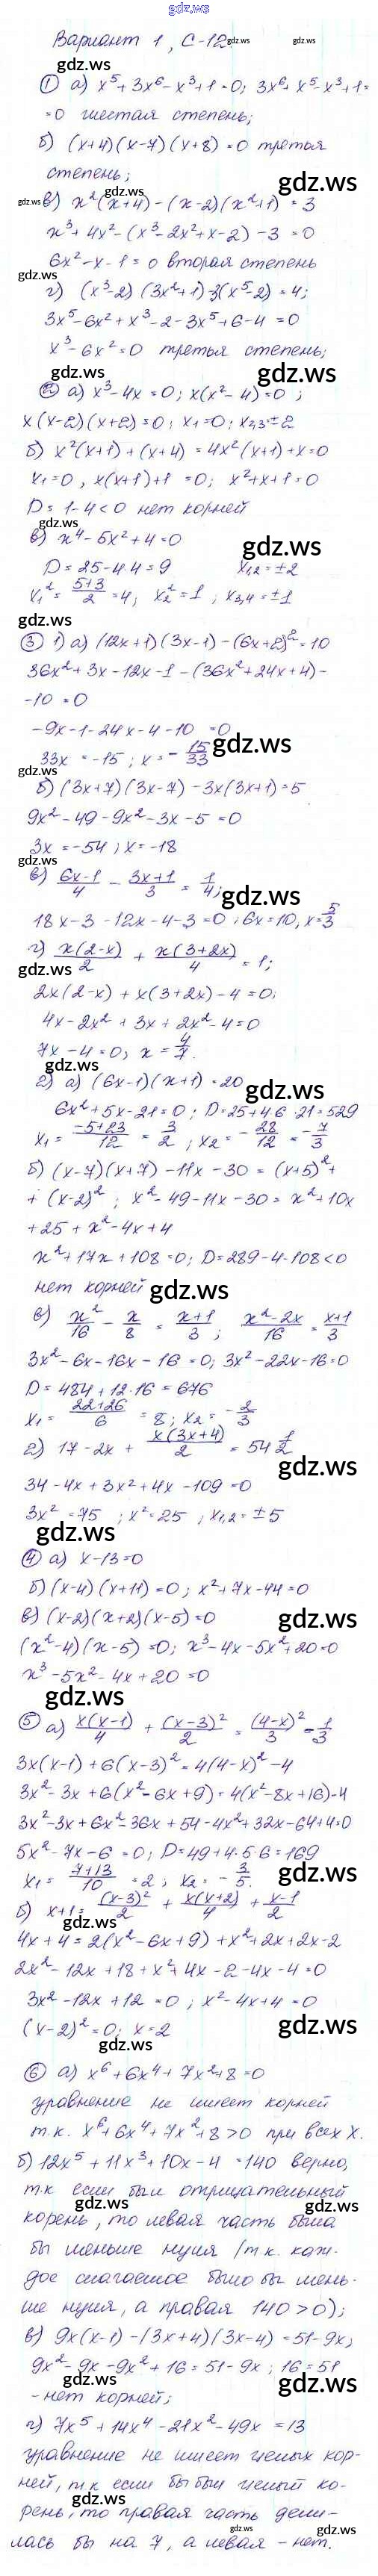 gdz.ws
Вариант 1, С-12
gdz.ws gdz.ws
gdz.ws
① а) x⁵+3x⁶-x³+1=0; 3x⁶+x⁵-x³+1=
=0 шестая степень;
б) (x+4)(x-7)(x+8)=0 третья
степень;
gdz.ws
gdz.ws в) x²(x+4)-(x-2)(x²+1)=3
gdz.ws
x³+4x²-(x³-2x²+x-2)-3=0
6x²-x-1=0 вторая степень
gdz.ws
г) (x³-2)(3x²+1)-3(x⁵-2)=4;
3x⁵-6x²+x³-2-3x⁵+6-4=0
x³-6x²=0 третья степень;
gdz.ws gdz.ws
② а) x³-4x=0; x(x²-4)=0;
x(x-2)(x+2)=0; x₁=0; x₂,₃=±2
б) x²(x+1)+(x+4)=4x²(x+1)+x=0
x₁=0, x(x+1)+1=0; x²+x+1=0
D=1-4<0 нет корней
gdz.ws
в) x⁴-5x²+4=0
gdz.ws
D=25-4·4=9 x₁,₂=±2
x₁²=(5+3)/2=4; x₂²=1; x₃,₄=±1
gdz.ws
③ 1) а) (12x+1)(3x-1)-(6x+2)²=10
36x²+3x-12x-1-(36x²+24x+4)-
-10=0
-9x-1-24x-4-10=0
33x=-15; x=-15/33 gdz.ws
gdz.ws
б) (3x+7)(3x-7)-3x(3x+1)=5
9x²-49-9x²-3x-5=0
3x=-54; x=-18
gdz.ws
в) (6x-1)/4 - (3x+1)/3 = 1/4;
gdz.ws
18x-3-12x-4-3=0; 6x=10, x=5/3
г) x(2-x)/2 + x(3+2x)/4 = 1;
gdz.ws
2x(2-x)+x(3+2x)-4=0;
4x-2x²+3x+2x²-4=0
7x-4=0; x=4/7.
gdz.ws
2) а) (6x-1)(x+1)=20
gdz.ws
6x²+5x-21=0; D=25+4·6·21=529
x₁=(-5+23)/12=3/2; x₂=-28/12=-7/3
б) (x-7)(x+7)-11x-30=(x+5)²+
+(x-2)²; x²-49-11x-30=x²+10x
+25+x²-4x+4
x²+17x+108=0; D=289-4·108<0
нет корней gdz.ws
в) x²/16 - x/8 = (x+1)/3; (x²-2x)/16 = (x+1)/3
3x²-6x-16x-16=0; 3x²-22x-16=0
D=484+12·16=676
x₁=(22+26)/6=8; x₂=-2/3
г) 17-2x+x(3x+4)/2=54 1/2
gdz.ws
34-4x+3x²+4x-109=0
3x²=75; x²=25; x₁,₂=±5
gdz.ws
④ а) x-13=0
б) (x-4)(x+11)=0; x²+7x-44=0
в) (x-2)(x+2)(x-5)=0
gdz.ws
(x²-4)(x-5)=0; x³-4x-5x²+20=0
x³-5x²-4x+20=0
gdz.ws
⑤ а) x(x-1)/4 + (x-3)²/2 = (4-x)²/3 - 1/3
3x(x-1)+6(x-3)²=4(4-x)²-4
3x²-3x+6(x²-6x+9)=4(x²-8x+16)-4
3x²-3x+6x²-36x+54-4x²+32x-64+4=0
5x²-7x-6=0; D=49+4·5·6=169
x₁=(7+13)/10=2; x₂=-3/5. gdz.ws
б) x+1=(x-3)²/2 + x(x+2)/4 + (x-1)/2
gdz.ws
4x+4=2(x²-6x+9)+x²+2x+2x-2
2x²-12x+18+x²+4x-2-4x-4=0
3x²-12x+12=0; x²-4x+4=0
(x-2)²=0; x=2
gdz.ws
gdz.ws
⑥ а) x⁶+6x⁴+7x²+8=0
уравнение не имеет корней
т.к. x⁶+6x⁴+7x²+8>0 при всех x.
б) 12x⁵+11x³+10x-4=140 верно,
т.к если был отрицательный
gdz.ws gdz.ws
корень, то левая часть была
бы меньше нуля (т.к. каж-
дое слагаемое было бы мень-
ше нуля, а правая 140>0);
в) 9x(x-1)-(3x+4)(3x-4)=51-9x;
9x²-9x-9x²+16=51-9x; 16=51
gdz.ws gdz.ws
- нет корней;
г) 7x⁵+14x⁴-21x²-49x=13
уравнение не имеет целых кор-
ней, т.к если бы был целый ко-
gdz.ws
рень, то правая часть дели-
gdz.ws gdz.ws
лась бы на 7, а левая - нет.